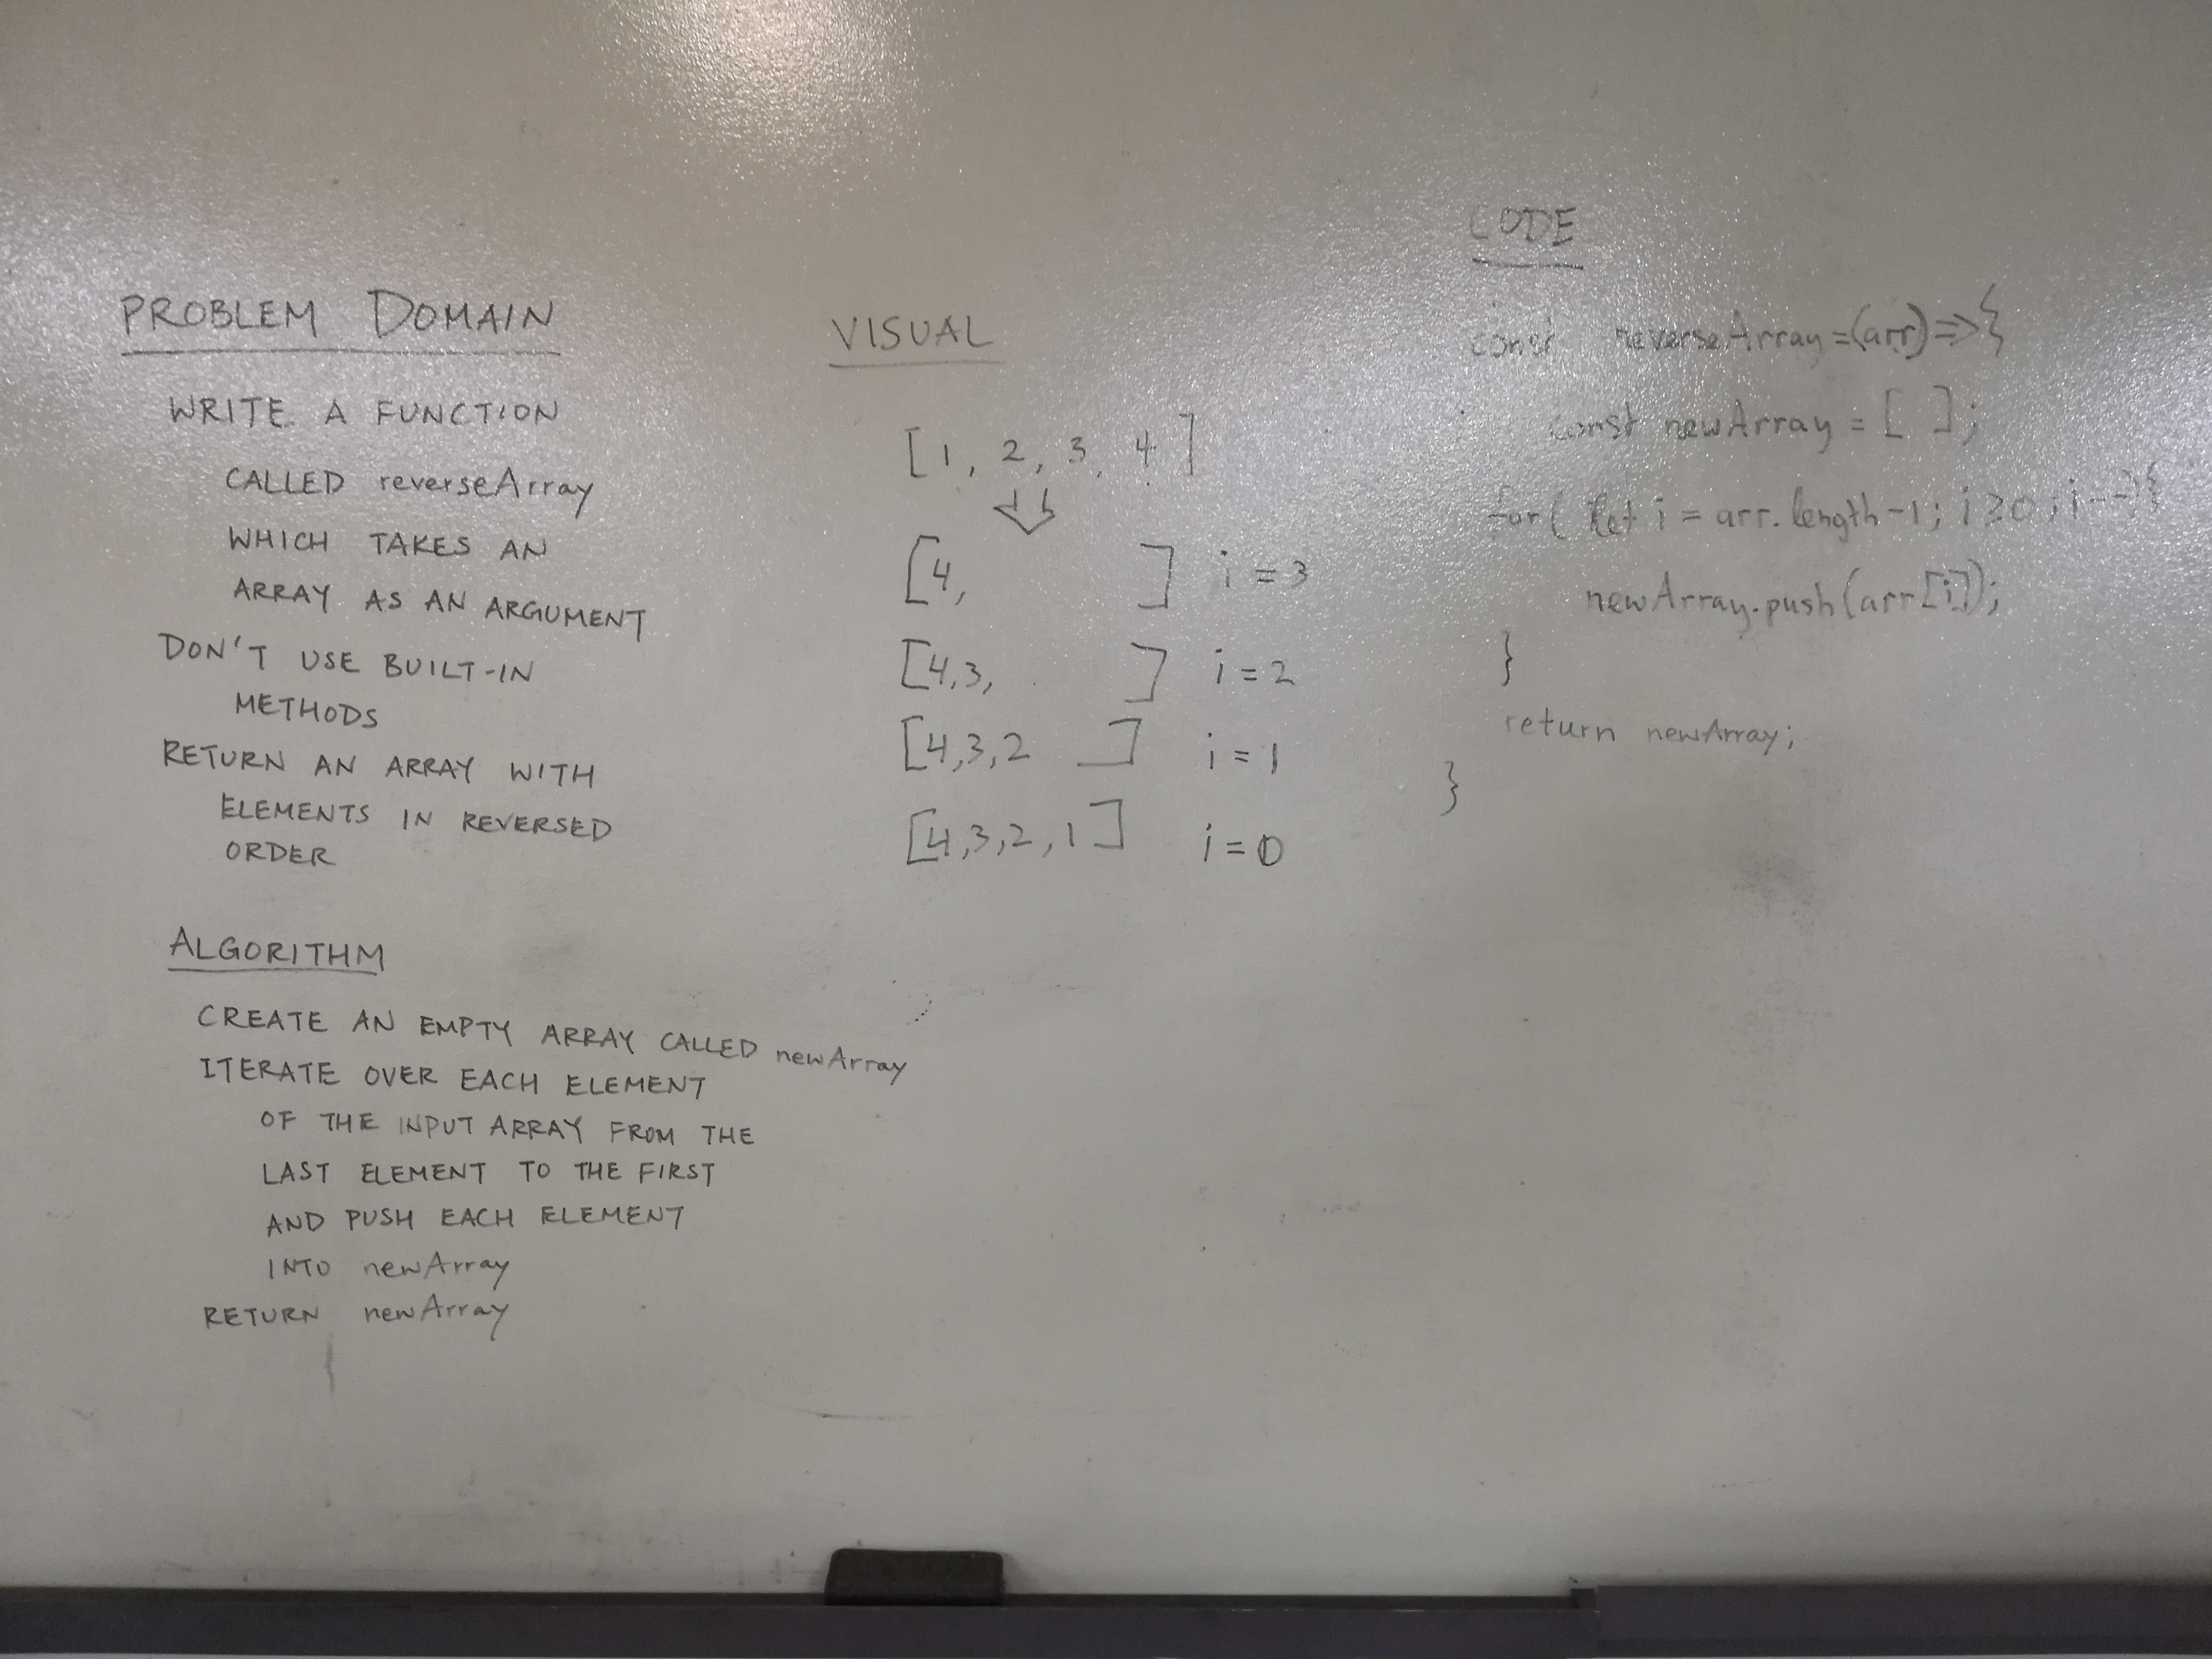 PROBLEM DOMAIN
WRITE A FUNCTION
CALLED reverseArray
WHICH TAKES AN
ARRAY AS AN ARGUMENT
DON'T USE BUILT-IN
METHODS
RETURN AN ARRAY WITH
ELEMENTS IN REVERSED
ORDER
ALGORITHM
CREATE AN EMPTY ARRAY CALLED newArray
ITERATE OVER EACH ELEMENT
OF THE INPUT ARRAY FROM THE
LAST ELEMENT TO THE FIRST
AND PUSH EACH ELEMENT
INTO newArray
RETURN newArray
VISUAL
[1, 2, 3, 4]
[4, ] i = 3
[4,3, ] i = 2
[4,3,2 ] i = 1
[4,3,2,1] i = 0
CODE
const reverseArray=(arr)=>{
const newArray = [ ];
for( let i = arr.length-1; i≥0; i--){
newArray.push(arr[i]);
}
return newArray;
}